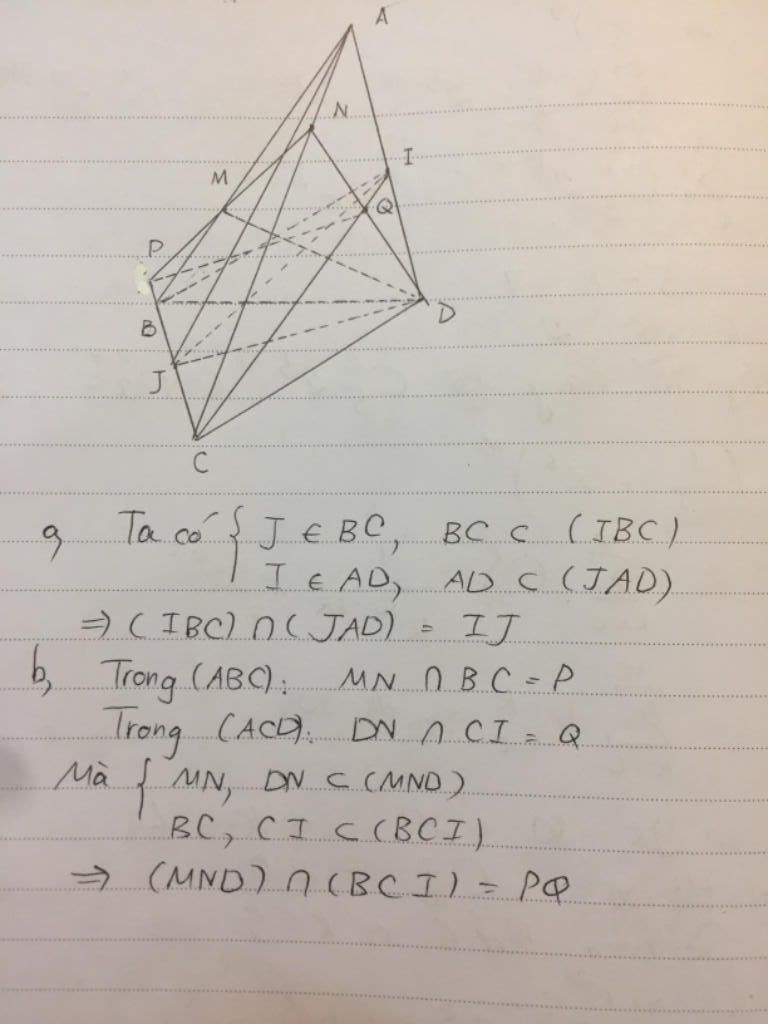 A
N
I
M
Q
P
B
D
J
C
a, Ta có { J ∈ BC, BC ⊂ (IBC)
I ∈ AD, AD ⊂ (JAD)
⇒ (IBC) ∩ (JAD) = IJ
b, Trong (ABC): MN ∩ BC = P
Trong (ACD): DN ∩ CI = Q
Mà { MN, DN ⊂ (MND)
BC, CI ⊂ (BCI)
⇒ (MND) ∩ (BCI) = PQ